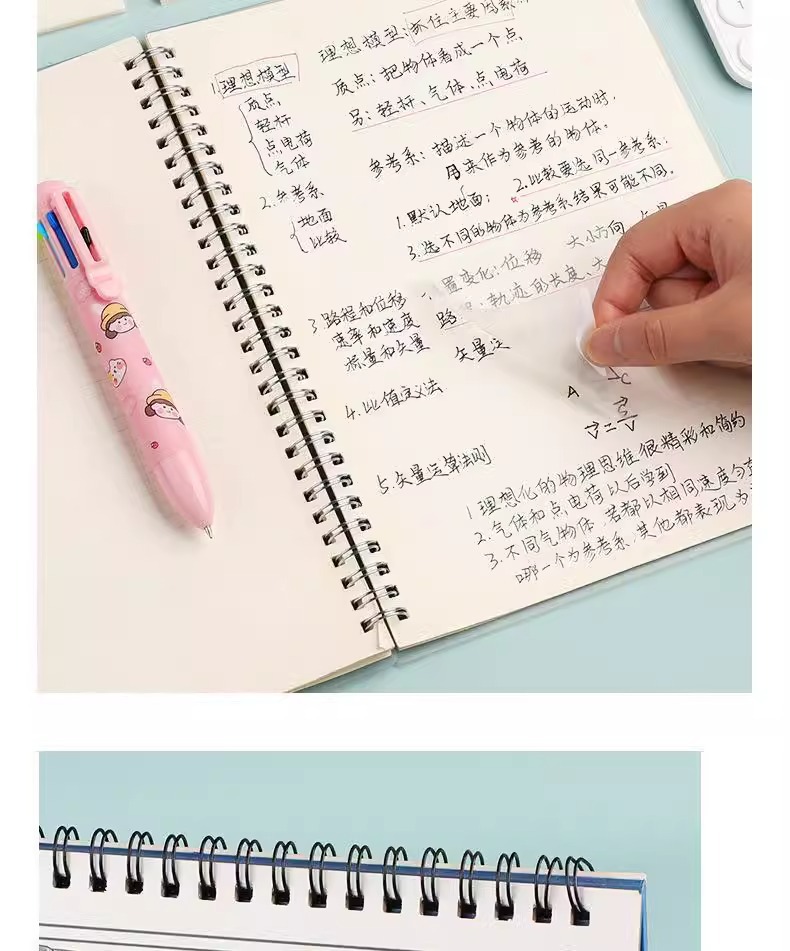 1.理想模型
质点
轻杆
点电荷
气体
2.参考系
地面
比较
3.路程和位移
速率和速度
标量和矢量
4.比值定义法
5.矢量运算法则
理想模型:抓住主要因素
质点:把物体看成一个点.
另:轻杆、气体、点电荷
参考系:描述一个物体的运动时.
用来作为参考的物体.
1.默认地面; 2.比较要选同一参考系;
3.选不同的物体为参考系结果可能不同.
置变化:位移 大小方向
路 :轨迹的长度、大
矢量
A
C
1.理想化的物理思维很精彩和简约
2.气体和点电荷以后学到
3.不同气物体,若都以相同速度匀
哪一个为参考系,其他都表现为